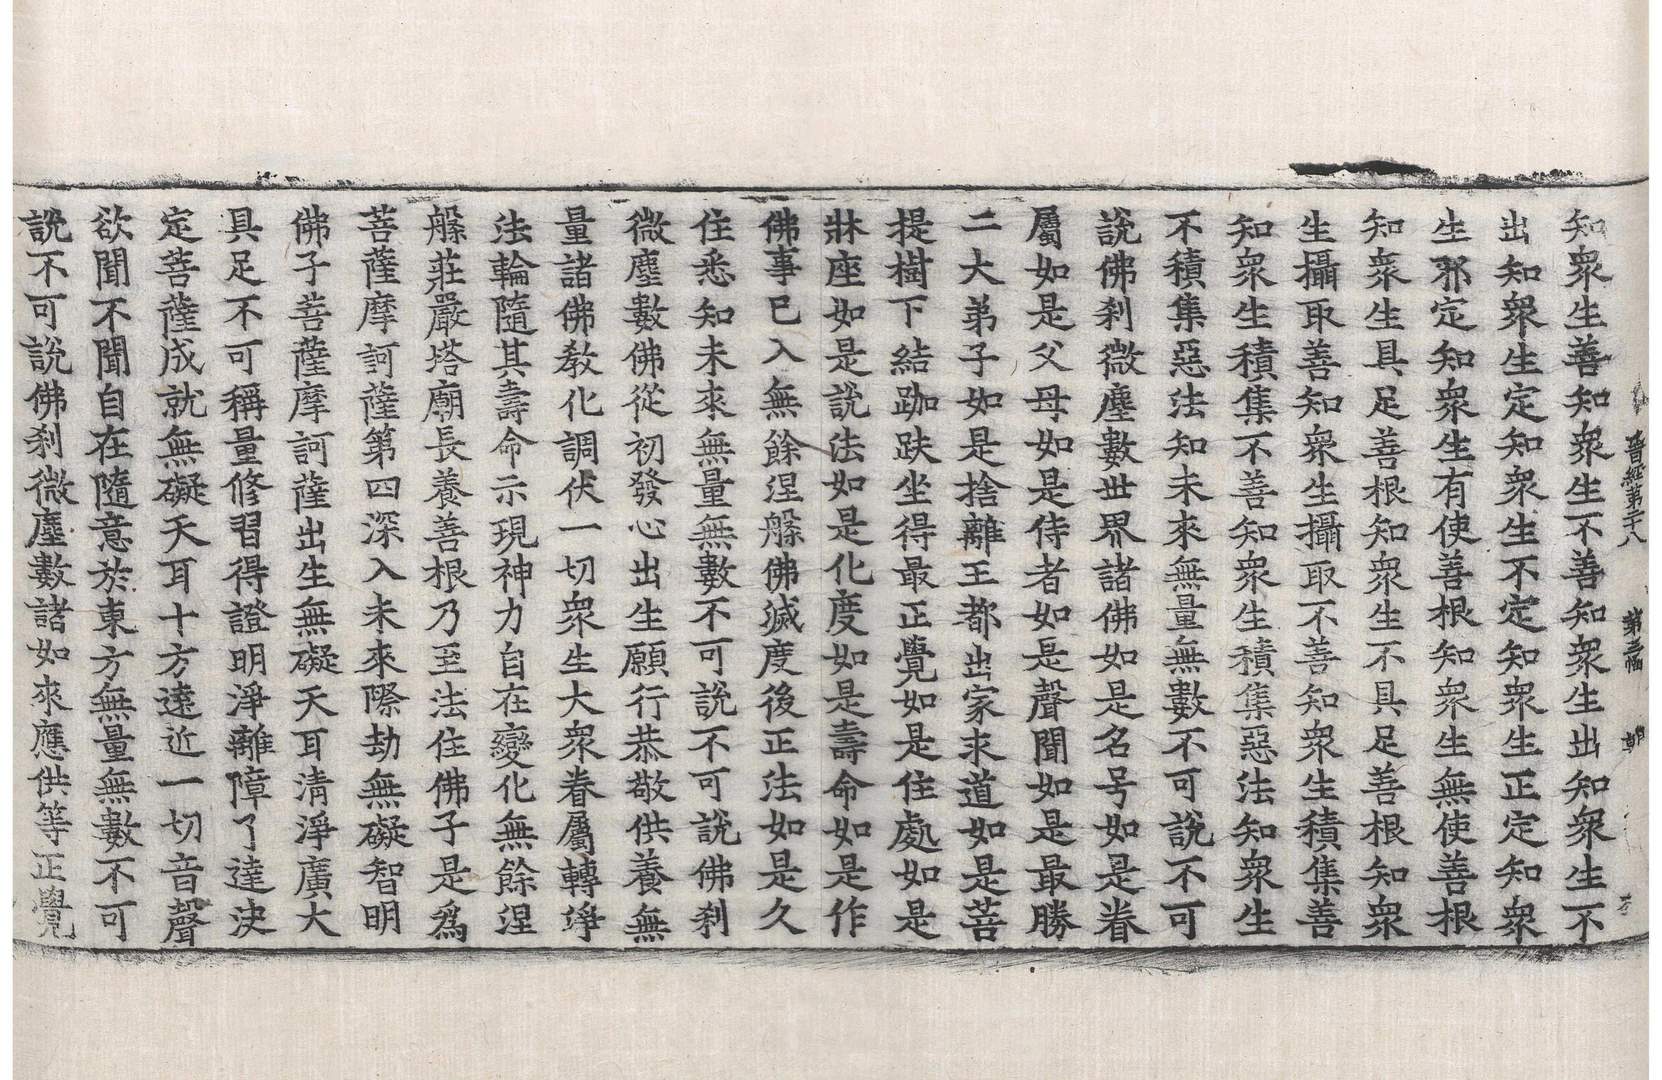 晉經第二十八 第三幅 朝
知衆生善知衆生不善知衆生出知衆生不
出知衆生定知衆生不定知衆生正定知衆
生邪定知衆生有使善根知衆生無使善根
知衆生具足善根知衆生不具足善根知衆
生攝取善知衆生攝取不善知衆生積集善
知衆生積集不善知衆生積集惡法知衆生
不積集惡法知未來無量無數不可說不可
說佛刹微塵數世界諸佛如是名号如是眷
屬如是父母如是侍者如是聲聞如是最勝
二大弟子如是捨離王都出家求道如是菩
提樹下結跏趺坐得最正覺如是住處如是
牀座如是說法如是化度如是壽命如是作
佛事已入無餘涅槃佛滅度後正法如是久
住悉知未來無量無數不可說不可說佛刹
微塵數佛從初發心出生願行恭敬供養無
量諸佛教化調伏一切衆生大衆眷屬轉淨
法輪隨其壽命示現神力自在變化無餘涅
槃莊嚴塔廟長養善根乃至法住佛子是爲
菩薩摩訶薩第四深入未來際劫無礙智明
佛子菩薩摩訶薩出生無礙天耳清淨廣大
具足不可稱量修習得證明淨離障了達決
定菩薩成就無礙天耳十方遠近一切音聲
欲聞不聞自在隨意於東方無量無數不可
說不可說佛刹微塵數諸如來應供等正覺